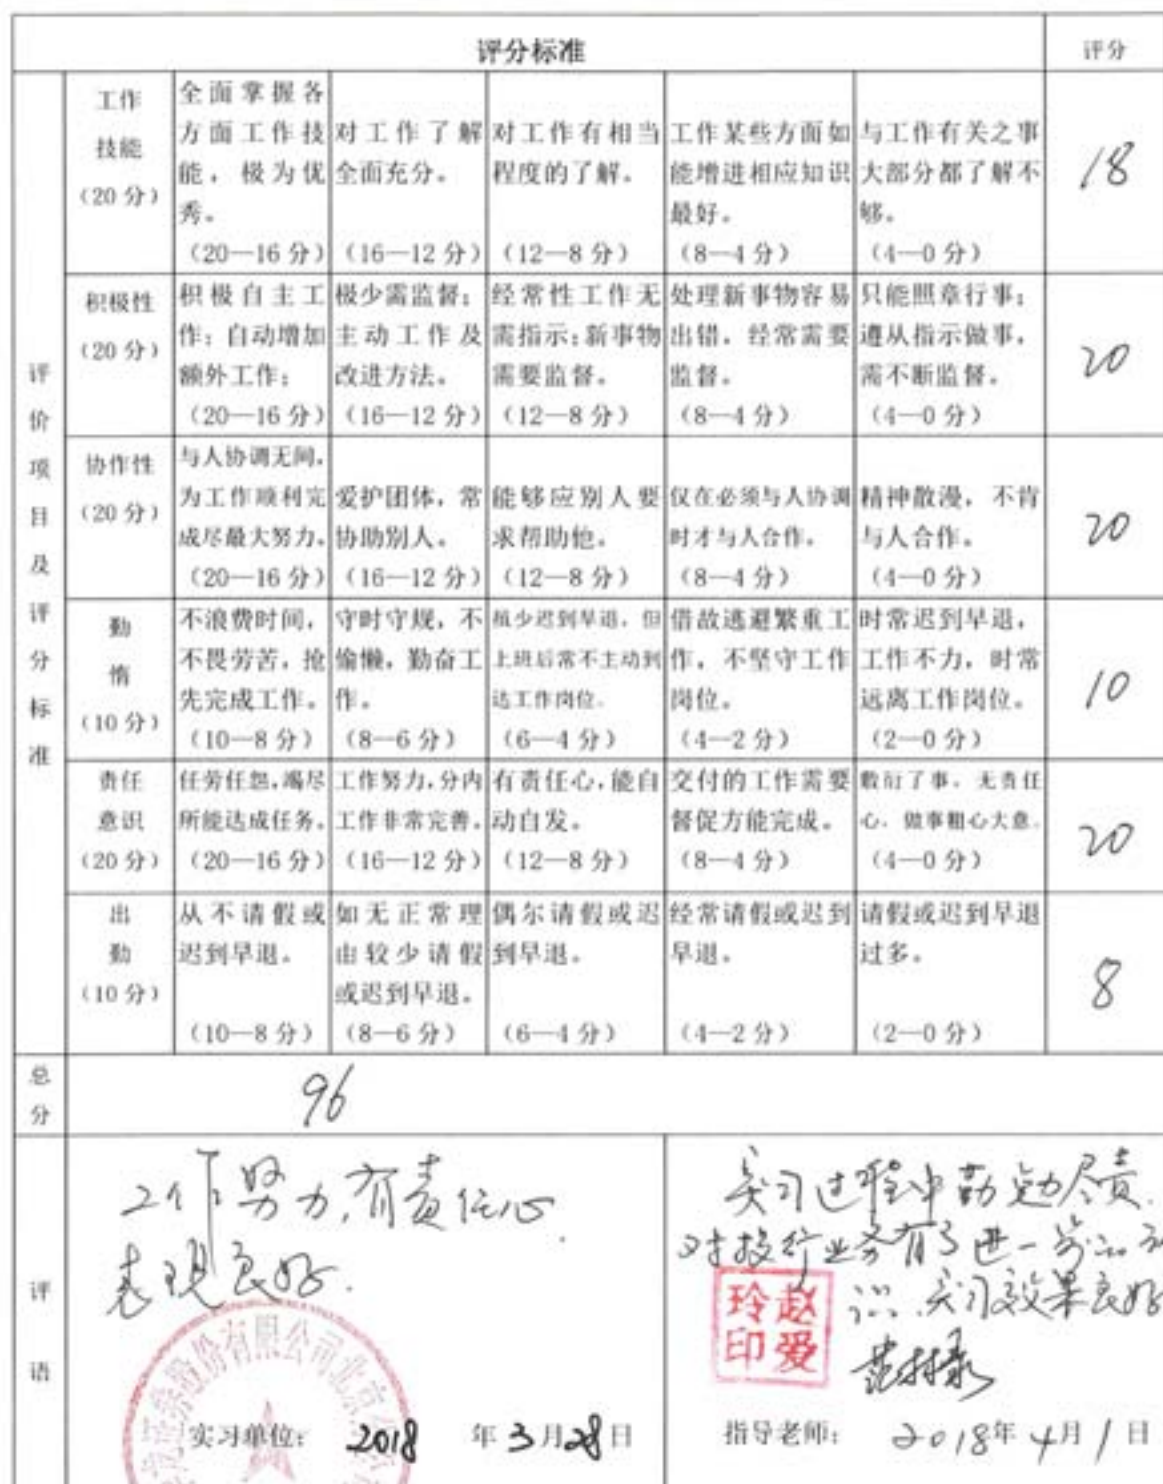 评分标准 评分
评价项目及评分标准
工作技能(20分)
全面掌握各
方面工作技
能，极为优
秀。
(20—16分)
对工作了解
全面充分。
(16—12分)
对工作有相当
程度的了解。
(12—8分)
工作某些方面如
能增进相应知识
最好。
(8—4分)
与工作有关之事
大部分都了解不
够。
(4—0分)
18
积极性
(20分)
积极自主工
作；自动增加
额外工作；
(20—16分)
极少需监督；
主动工作及
改进方法。
(16—12分)
经常性工作无
需指示；新事物
需要监督。
(12—8分)
处理新事物容易
出错，经常需要
监督。
(8—4分)
只能照章行事；
遵从指示做事，
需不断监督。
(4—0分)
20
协作性
(20分)
与人协调无间，
为工作顺利完
成尽最大努力。
(20—16分)
爱护团体，常
协助别人。
(16—12分)
能够应别人要
求帮助他。
(12—8分)
仅在必须与人协调
时才与人合作。
(8—4分)
精神散漫，不肯
与人合作。
(4—0分)
20
勤
惰
(10分)
不浪费时间，
不畏劳苦，抢
先完成工作。
(10—8分)
守时守规，不
偷懒，勤奋工
作。
(8—6分)
虽少迟到早退，但
上班后常不主动到
达工作岗位。
(6—4分)
借故逃避繁重工
作，不坚守工作
岗位。
(4—2分)
时常迟到早退，
工作不力，时常
远离工作岗位。
(2—0分)
10
责任
意识
(20分)
任劳任怨，竭尽
所能达成任务。
(20—16分)
工作努力，分内
工作非常完善。
(16—12分)
有责任心，能自
动自发。
(12—8分)
交付的工作需要
督促方能完成。
(8—4分)
敷衍了事，无责任
心，做事粗心大意。
(4—0分)
20
出
勤
(10分)
从不请假或
迟到早退。
(10—8分)
如无正常理
由较少请假
或迟到早退。
(8—6分)
偶尔请假或迟
到早退。
(6—4分)
经常请假或迟到
早退。
(4—2分)
请假或迟到早退
过多。
(2—0分)
8
总分
96
评语
工作努力，有责任心
表现良好．
股份有限公司北京
实习单位： 2018 年3月28日
实习过程中勤勉尽责．
对投行业务有了进一步的认
识．实习效果良好
赵爱玲印
指导老师： 2018年4月1日